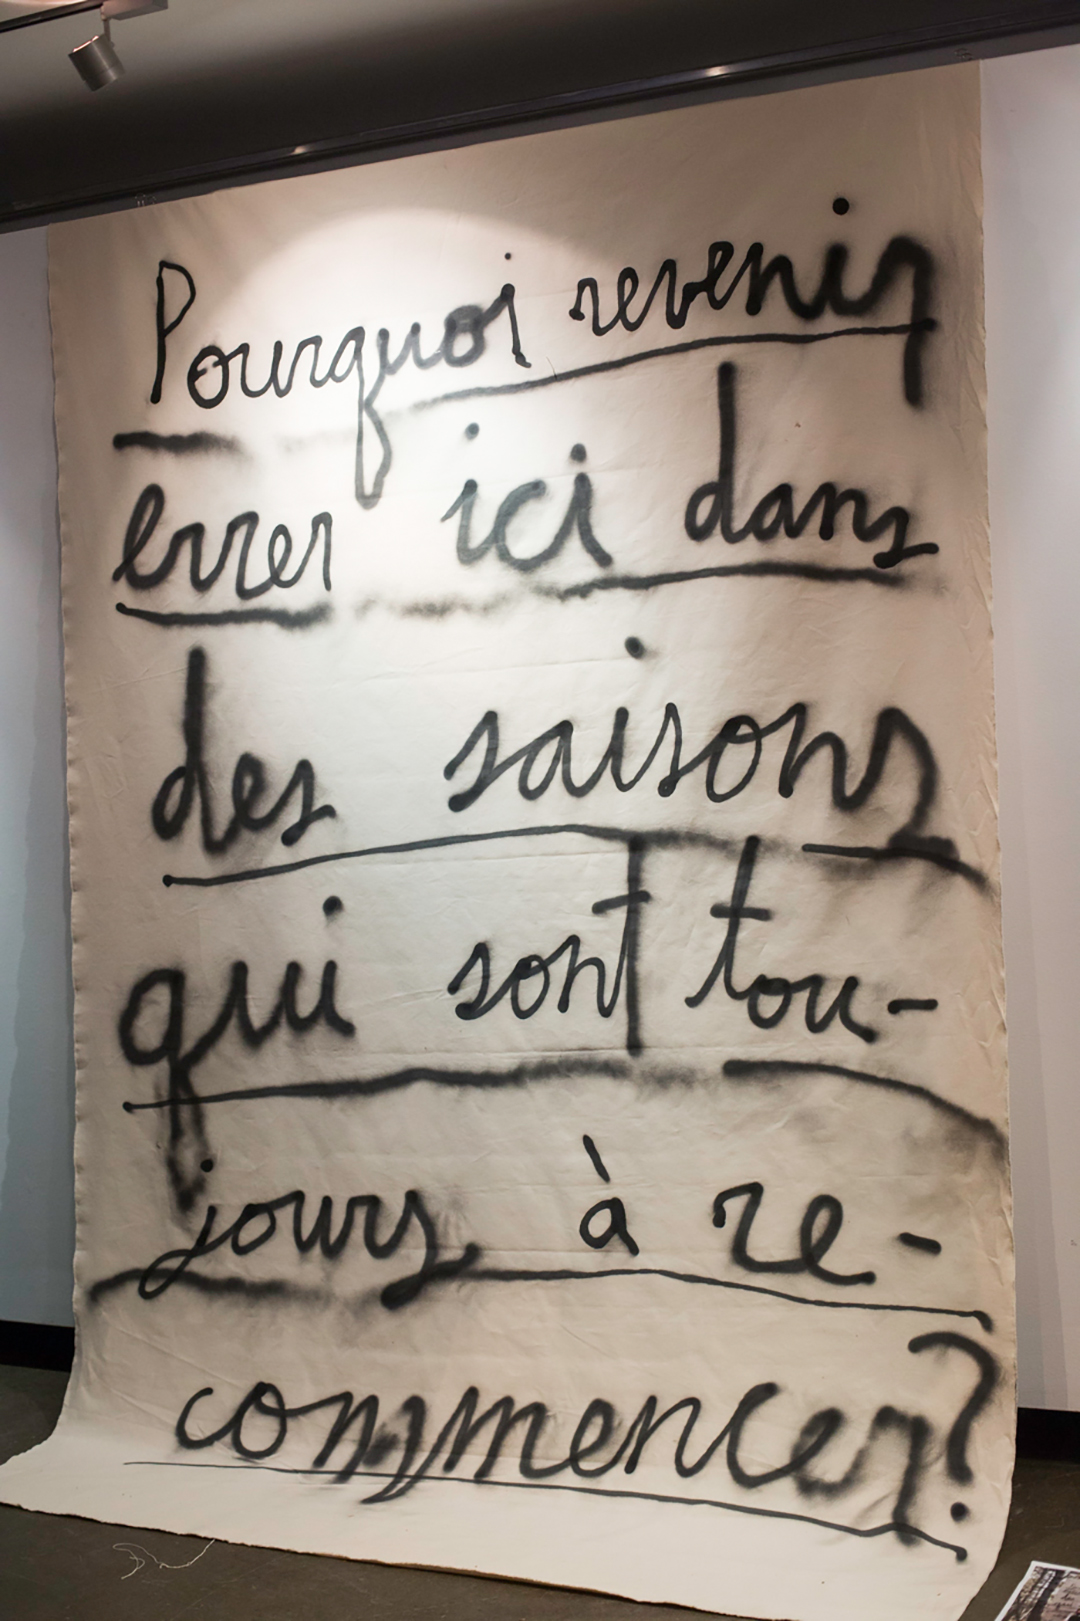 Pourquoi revenir
errer ici dans
des saisons
qui sont tou-
jours à re-
commencer?